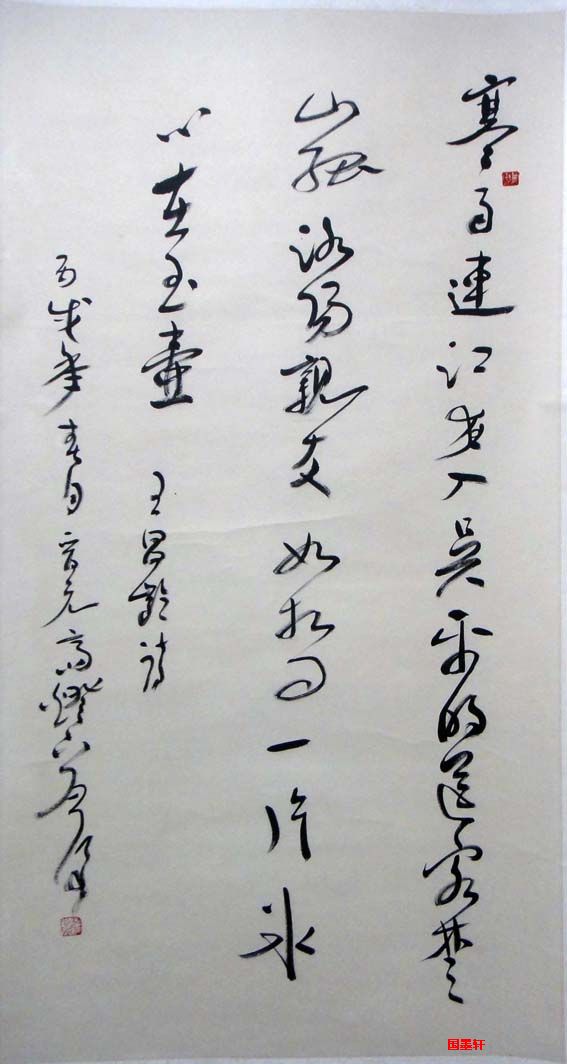 寒雨連江夜入吳平明送客楚
山孤洛陽親友如相問一片冰
心在玉壺 王昌齡詩
丙戌年春月高燈下
国墨轩